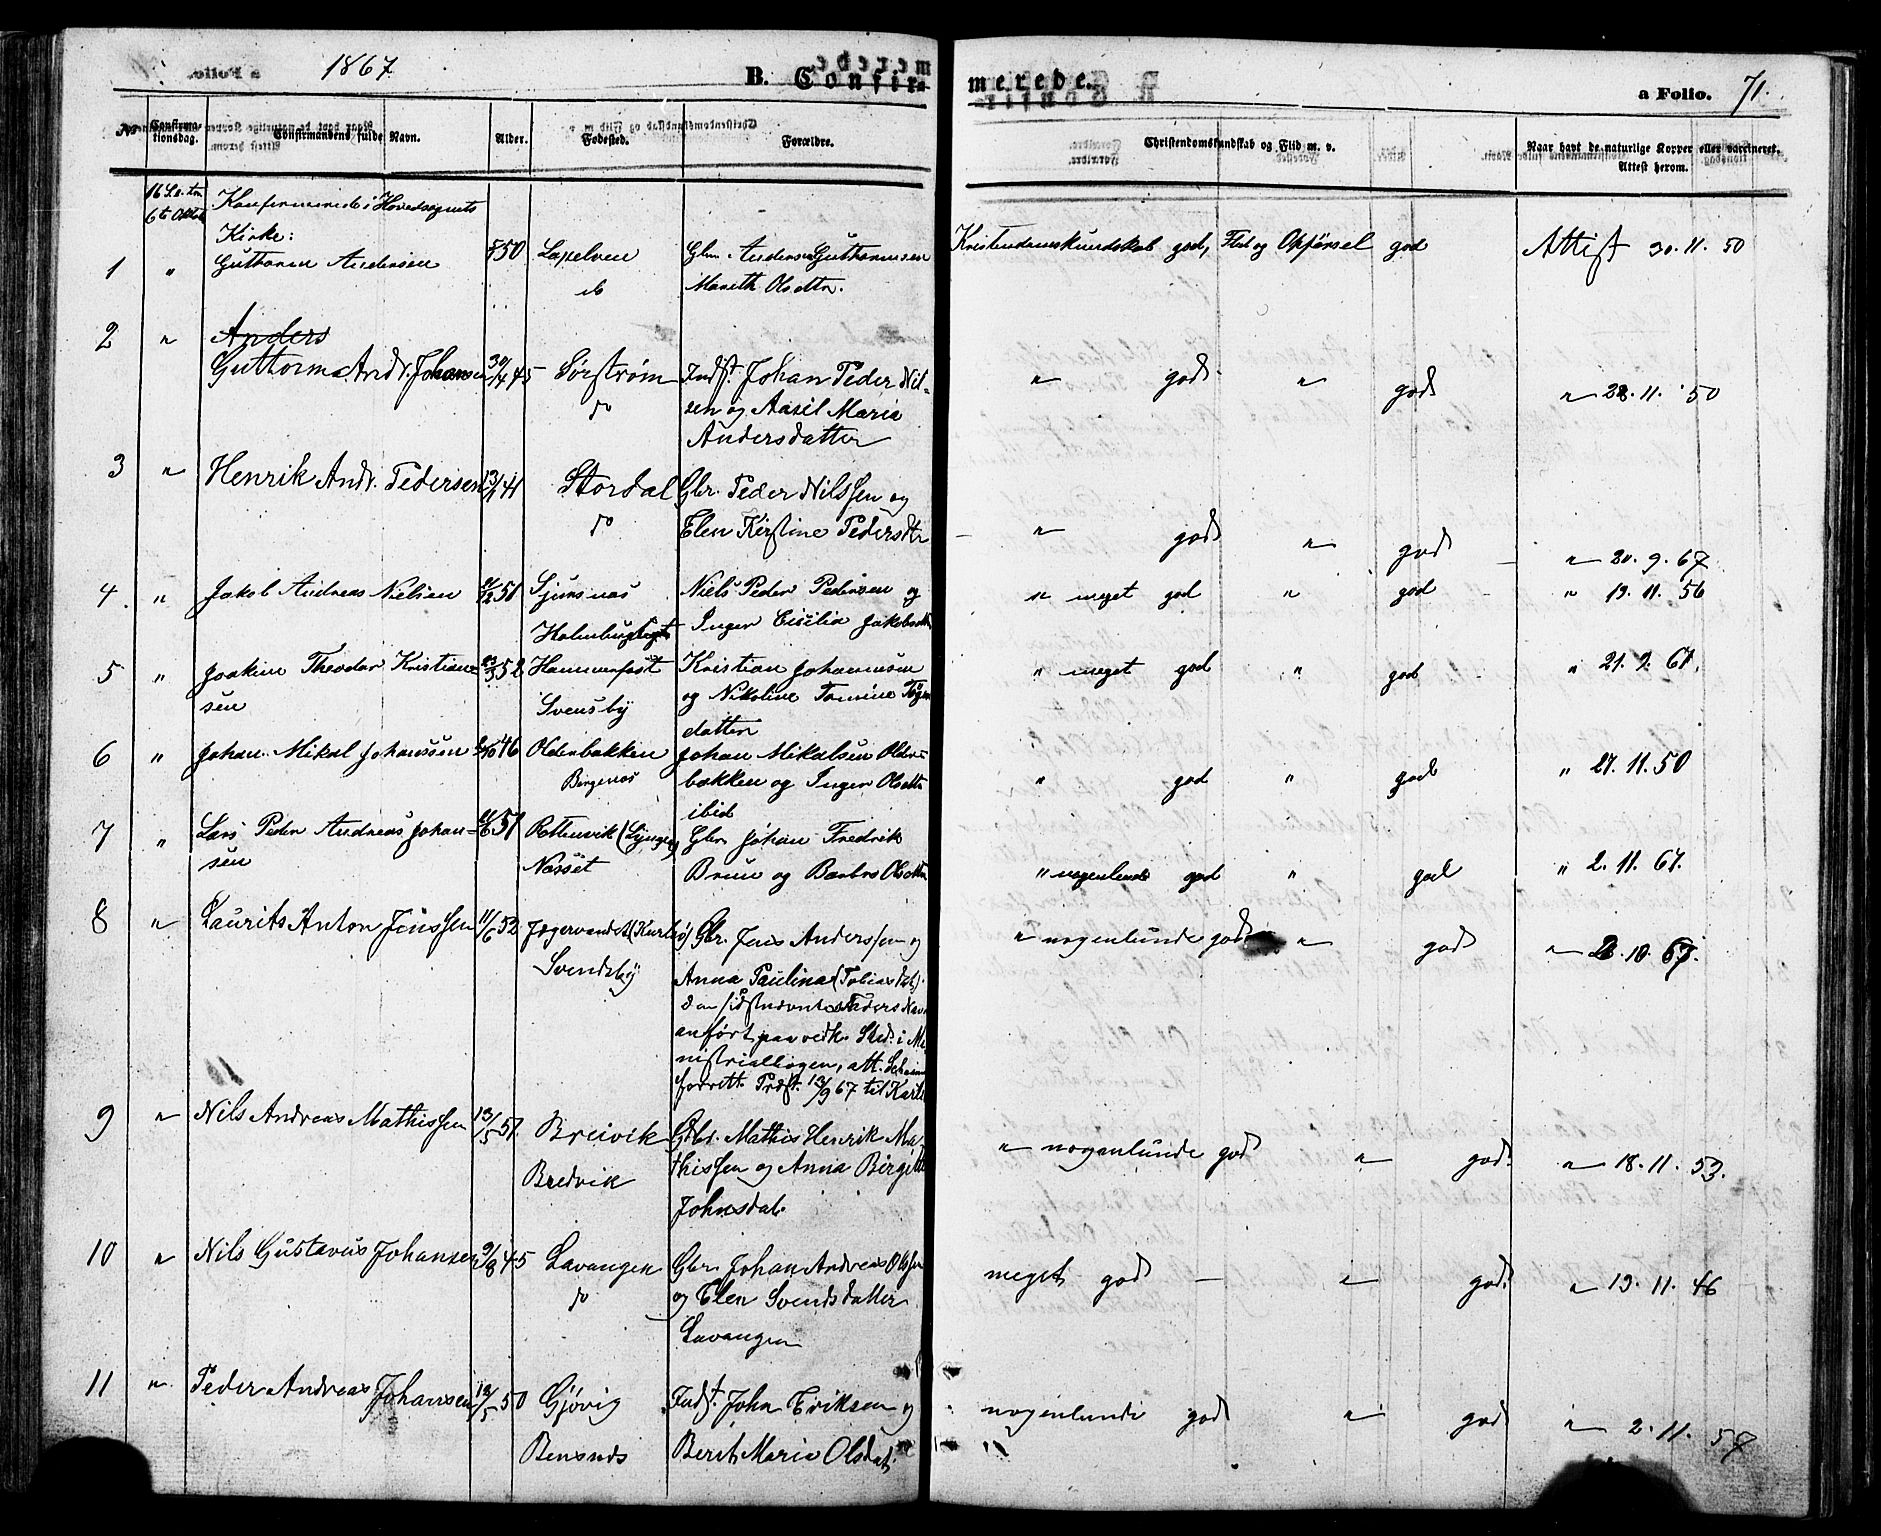 1867
B. Confirmerede.
a Folio. 71.
No Confirmationsdag. Confirmandens fulde Navn. Alder. Fødested. Forældre. Christendomskundskab og Flid m. v. Naar havt de naturlige Kopper eller vaccineret. Attest herom.
Konfirmerede i Hovedsognets
Kirke:
1 " Guttorm Andersen 50 Gbr. Anders Guttormsen
Mareth Olsdtr.
Kristendomskundskab god, Flid og Opførsel god Attest 30. 11. 50
2 " Anders
Guttorm Andr. Johansen 45 Sørstrøm Indst. Johan Peder Nil-
do sen og Aasil Maria
Andersdatter
" god " god " 28. 11. 50
3 " Henrik Andr. Pedersen 41 Stordal Gbr. Peder Nilssen og
do Elen Kirstine Pedersdtr
" god " god " 20. 9. 67
4 " Jakob Andreas Nielsen 51 Sjursnæs Niels Peder Pedersen og
Inger Cicilia Jakobsdtr
" meget god " god " 19. 11. 56
5 " Joakim Theodor Kristian- 52 Hammerfest Kristian Johannesen
sen Svensby og Nikoline Tomine
datter
" meget god " god " 21. 9. 67.
6 " Johan Mikal Johanssen 46 Olderbakken Johan Mikalsen Older-
bakken og Inger Olsdtr
ibid
" god " god " 27. 11. 50
7 " Lars Peder Andreas Johan- 51 Rottenvik (Lyngen) Gbr. Johan Fredrik
sen Næsset Bruun og Barbro Olsdtr
" nogenlunde god " god " 2. 11. 67.
8 " Laurits Anton Jenssen 11/6 52 Jægervandet (Karlsø) Gbr. Jens Anderssen og
Svendsby Anna Paulina (Tobiasdat)
den sidstnævntes Faders Navn
anført paa vedk. Sted i Mi-
nistrialbogen, att.
13/9 67 til Karlsø
" nogenlunde god " god " 2. 10. 67.
9 " Nils Andreas Mathissen 13/5 51. Breivik Gbr. Mathis Henrik Ma-
Bredvik thissen og Anna Birgitte
Johnsdat.
" nogenlunde god " god. " 18. 11. 53.
10 " Nils Gustavus Johansen 9/8 45 Lavangen Gbr. Johan Andreas Olssen
do og Elen Svendsdatter
Lavangen
meget god — " god. " 19. 11. 46
11 " Peder Andreas Johansen 50 Gjøvig Indst. John Eriksen og
Bensnæs Berit Maria Olsdat.
nogenlunde god " god " 2. 11. 58